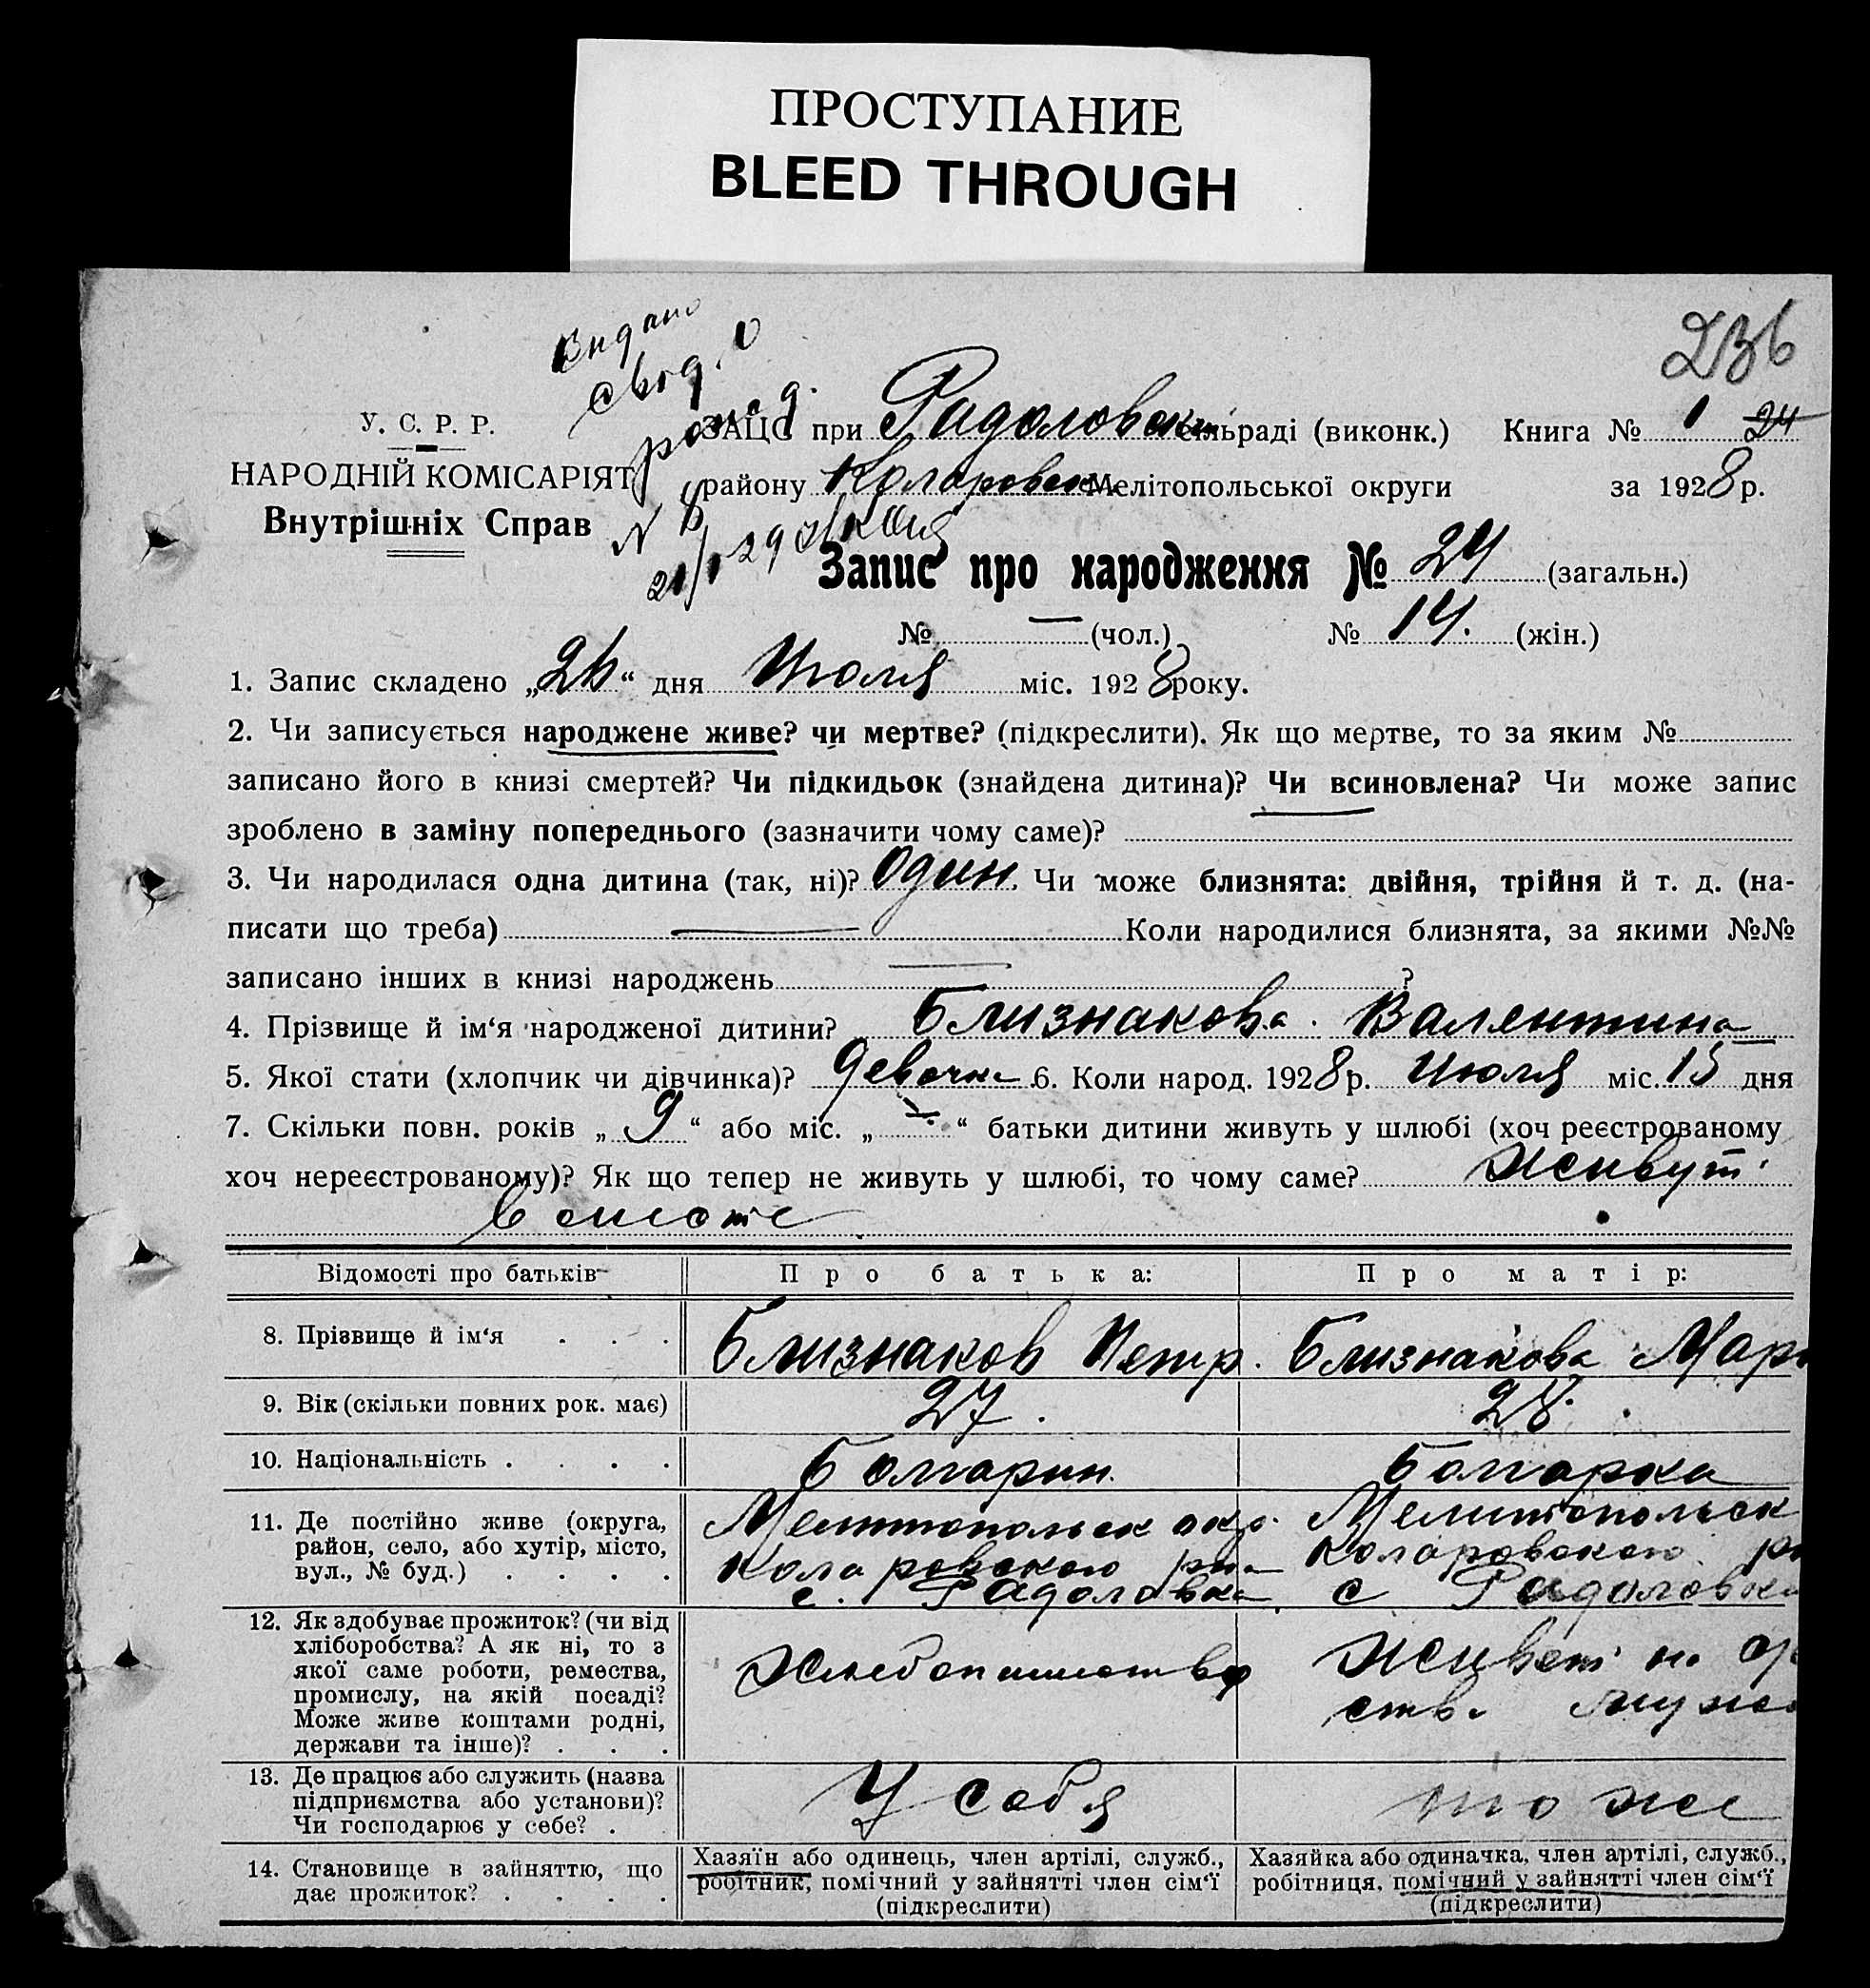 ПРОСТУПАНИЕ
BLEED THROUGH
236
Видано
свид. о
рожд.
У. С. Р. Р.
НАРОДНІЙ КОМІСАРІЯТ
Внутрішніх Справ
ЗАЦС при Радоловск сільраді (виконк.) Книга № 1 24
району Коларовск Мелітопольської округи за 1928 р.
N 8
21/I 29
Запис про народження № 24 (загальн.)
№ — (чол.) № 14. (жін.)
1. Запис складено „26“ дня Июля міс. 1928 року.
2. Чи записується народжене живе? чи мертве? (підкреслити). Як що мертве, то за яким №
записано його в книзі смертей? Чи підкидьок (знайдена дитина)? Чи всиновлена? Чи може запис
зроблено в заміну попереднього (зазначити чому саме)?
3. Чи народилася одна дитина (так, ні)? Один. Чи може близнята: двійня, трійня й т. д. (на-
писати що треба) — Коли народилися близнята, за якими №№
записано інших в книзі народжень — ?
4. Прізвище й ім‘я народженої дитини? Близнакова Валентина
5. Якої стати (хлопчик чи дівчинка)? девочка 6. Коли народ. 1928 р. Июля міс. 15 дня
7. Скільки повн. років „9“ або міс. „—“ батьки дитини живуть у шлюбі (хоч реєстрованому
хоч нереєстрованому)? Як що тепер не живуть у шлюбі, то чому саме? Живут
Відомості про батьків Про батька: Про матір:
8. Прізвище й ім‘я . . . Близнаков Петр. Близнакова Мари
9. Вік (скільки повних рок. має) 27. 28.
10. Національність . . . . Болгарин. Болгарка
11. Де постійно живе (округа,
район, село, або хутір, місто,
вул., № буд.) . . . .
Мелитопольск окр.
Коларовского р-на
с. Радоловка
Мелитопольск
Коларовского р
с Радоловка
12. Як здобуває прожиток? (чи від
хліборобства? А як ні, то з
якої саме роботи, ремества,
промислу, на якій посаді?
Може живе коштами родні,
держави та інше)? . . .
Хлебопашество
Живет на ср
ства мужа
13. Де працює або служить (назва
підприємства або установи)?
Чи господарює у себе? .
У себя
то же
14. Становище в зайняттю, що
дає прожиток? . . . .
Хазяїн або одинець, член артілі, служб.,
робітник, помічний у зайнятті член сім‘ї
(підкреслити)
Хазяйка або одиначка, член артілі, служб.,
робітниця, помічний у зайнятті член сім‘ї
(підкреслити)